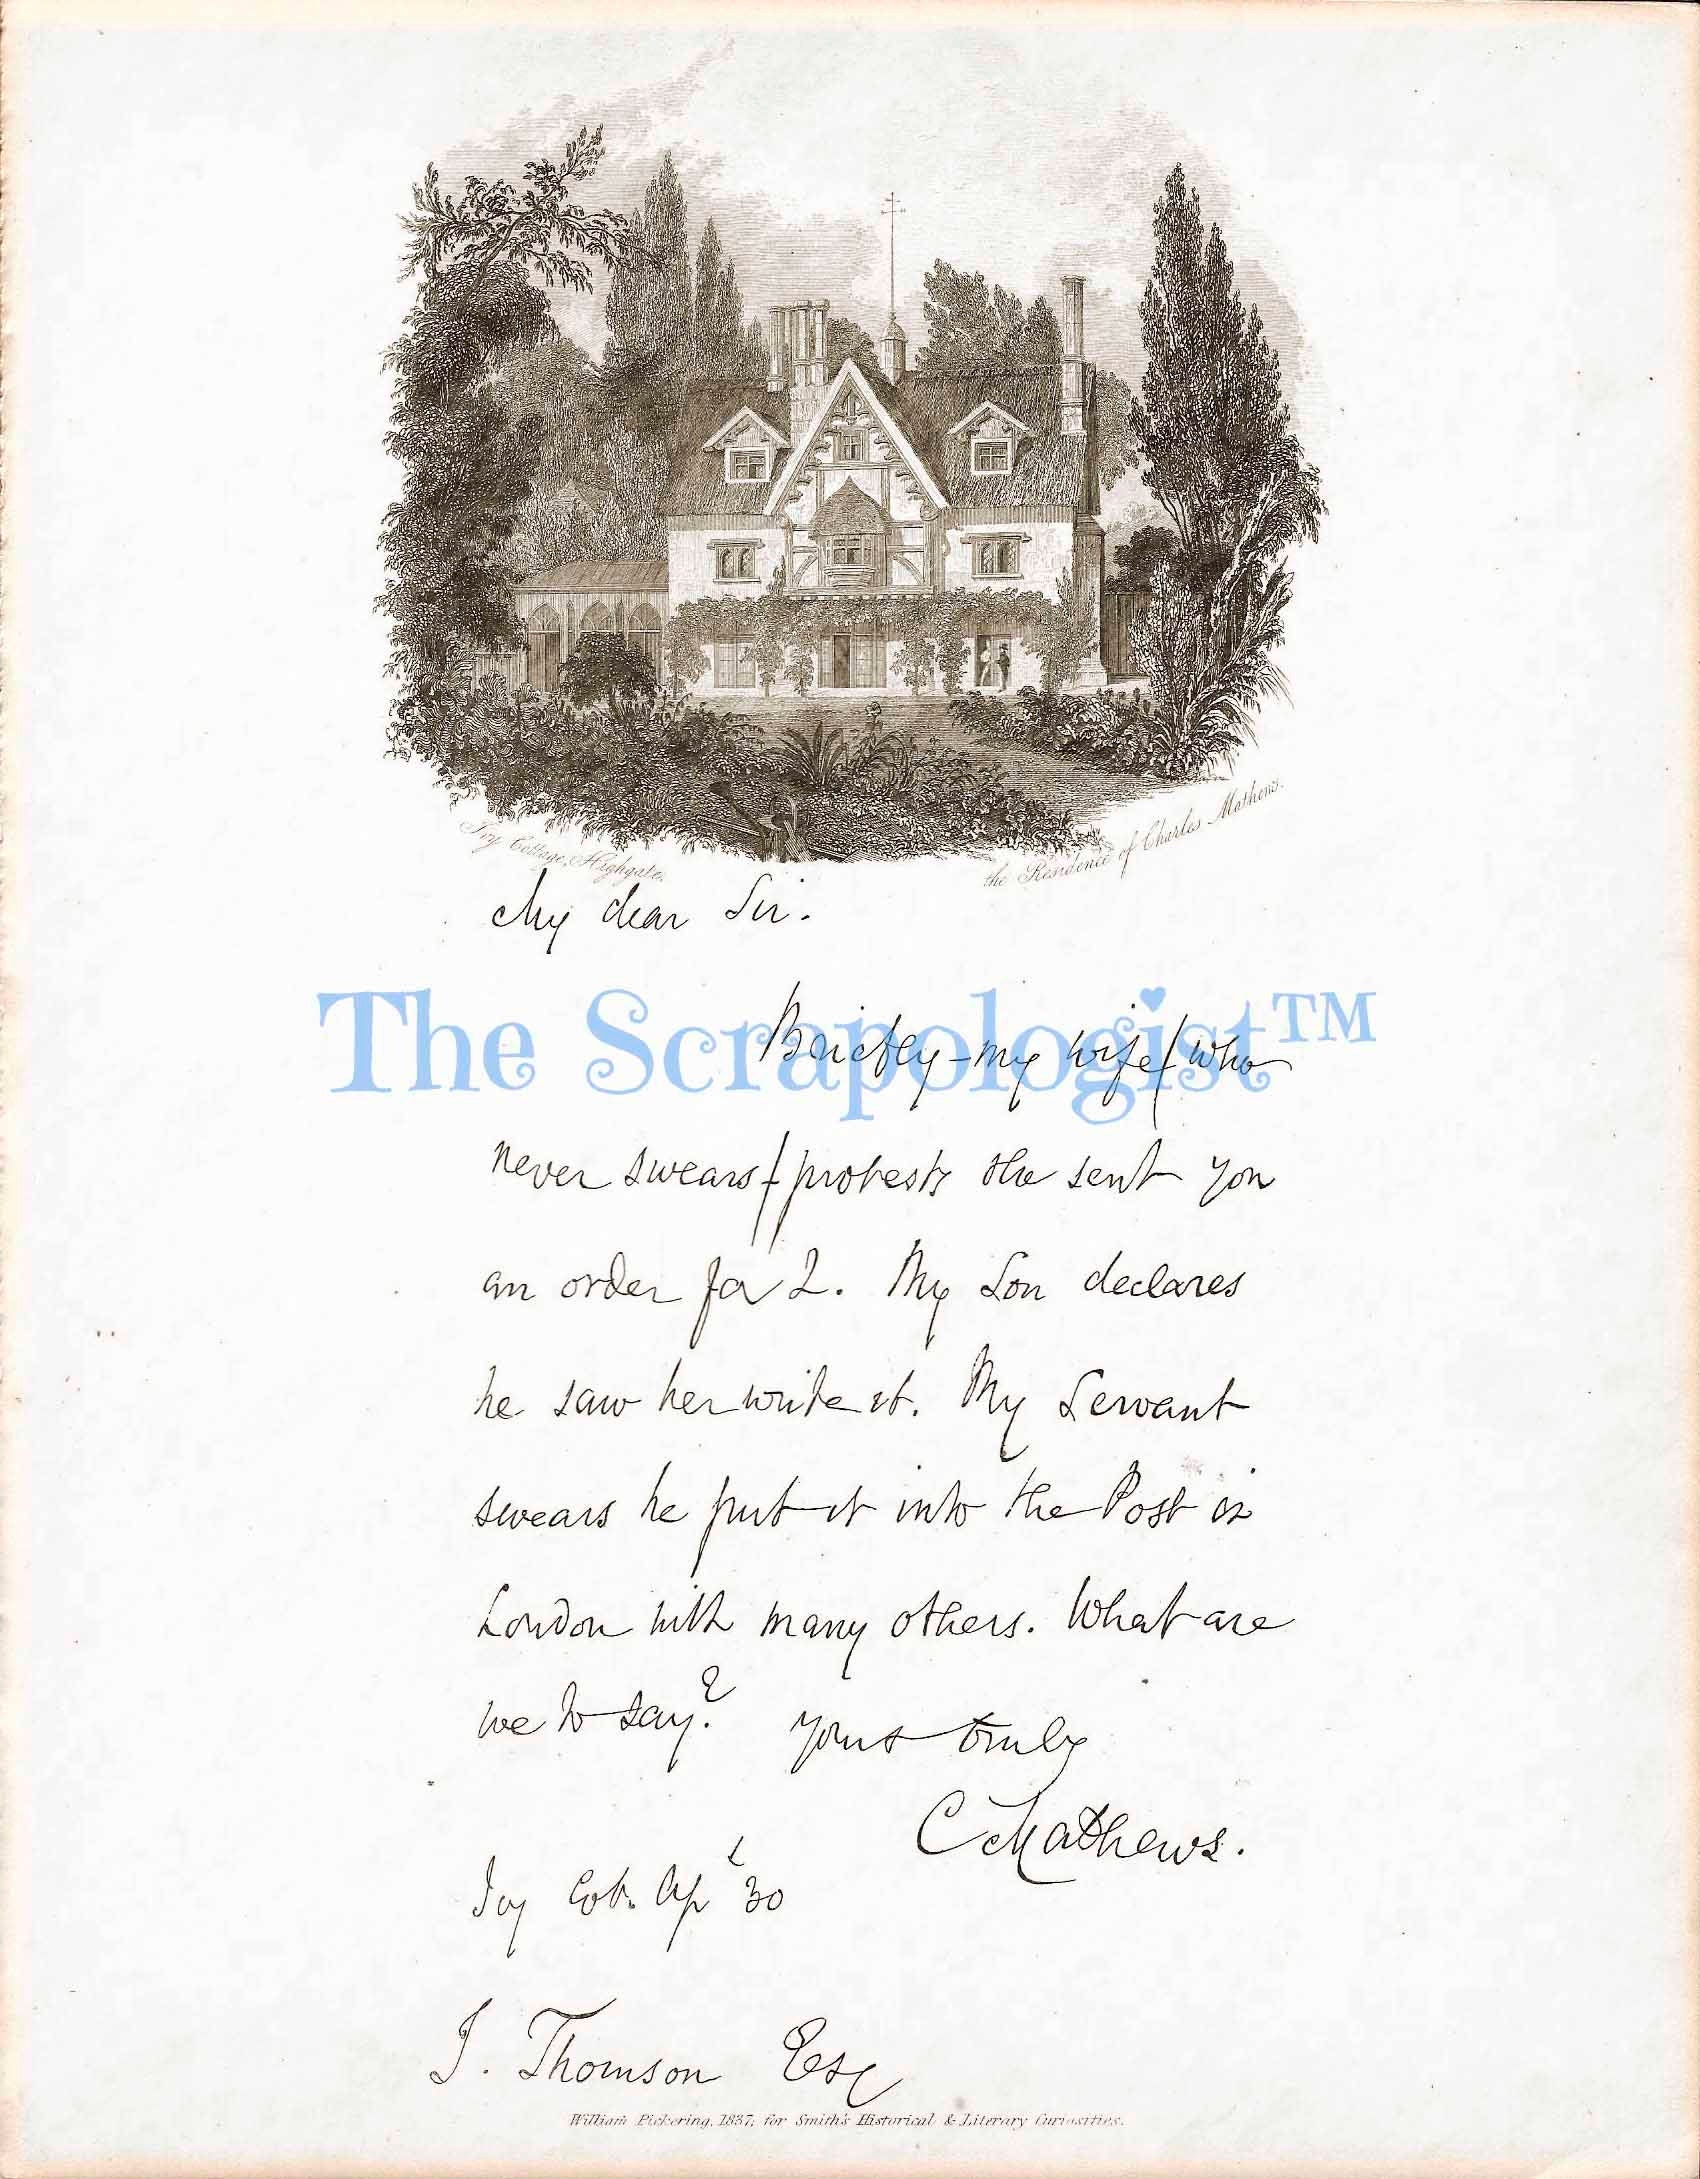 Ivy Cottage, Highgate.
the Residence of Charles Mathews.
My dear Sir.
The Scrapologist™
Briefly - my wife (who
never swears) protests she sent you
an order for 2. My Son declares
he saw her write it. My Servant
swears he put it into the Post in
London with many others. What are
we to say? Yours truly
C Mathews.
Ivy Cot. Apl 30
J. Thomson Esq
William Pickering, 1837; for Smith's Historical & Literary Curiosities.